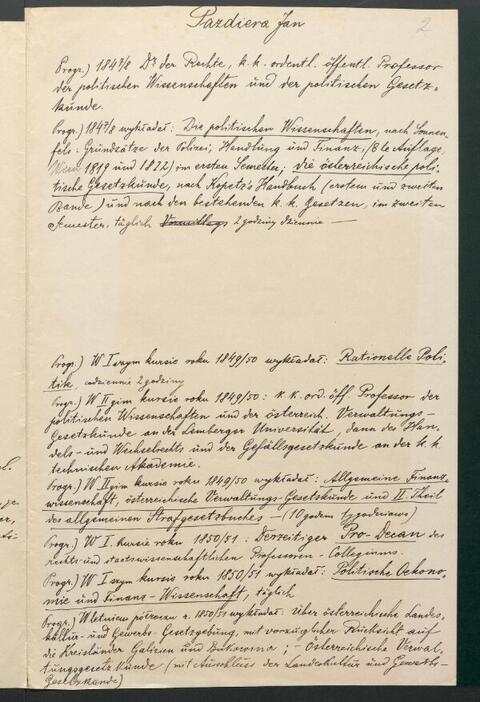 Pazdiera Jan
2
Progr.) 1847/8 Dr der Rechte, k. k. ordentl. öffentl. Professor
der politischen Wissenschaften und der politischen Gesetz-
kunde.
Progr.) 1847/8 wykładał: Die politischen Wissenschaften, nach Sonnen-
fels: Grundsätze der Polizei, Handlung und Finanz; (8le Auflage,
Wien 1819 und 1822) im ersten Semester; die österreichische poli-
tische Gesetzkunde, nach Kopetz's Handbuch (erstem und zweiten
Bande) und nach den bestehenden k. k. Gesetzen, im zweiten
Semester, täglich Vormittags 2 godziny dziennie —
Progr.) W I szym kursie roku 1849/50 wykładał: Rationelle Poli-
tik, codziennie 2 godziny
Progr.) W II gim kursie roku 1849/50: k. k. ord. öff. Professor der
politischen Wissenschaften und der österreich. Verwaltungs-
Gesetzkunde an der Lemberger Universität, dann des Han-
dels- und Wechselrechts und der Gefällsgesetzkunde an der k. k.
technischen Akademie.
Progr.) W II gim kursie roku 1849/50 wykładał: Allgemeine Finanz-
wissenschaft, österreichische Verwaltungs-Gesetzkunde und II. Theil
des allgemeinen Strafgesetzbuches — (10 godzin tygodniowo)
Progr.) W I. kursie roku 1850/51: Derzeitiger Pro-Decan des
rechts- und staatswissenschaftlichen Professoren-Collegiums.
Progr.) W I szym kursie roku 1850/51 wykładał: Politische Oekono-
mie und Finanz-Wissenschaft, täglich
Progr.) W letniem półroczu r. 1850/51 wykładał: Über österreichische Landes-
kultur- und Gewerbs-Gesetzgebung, mit vorzüglicher Rücksicht auf
die Kronländer Galizien und Bukowina; — Österreichische Verwal-
tungsgesetzkunde (mit Ausschluss der Landeskultur und Gewerbs-
Gesetzkunde)